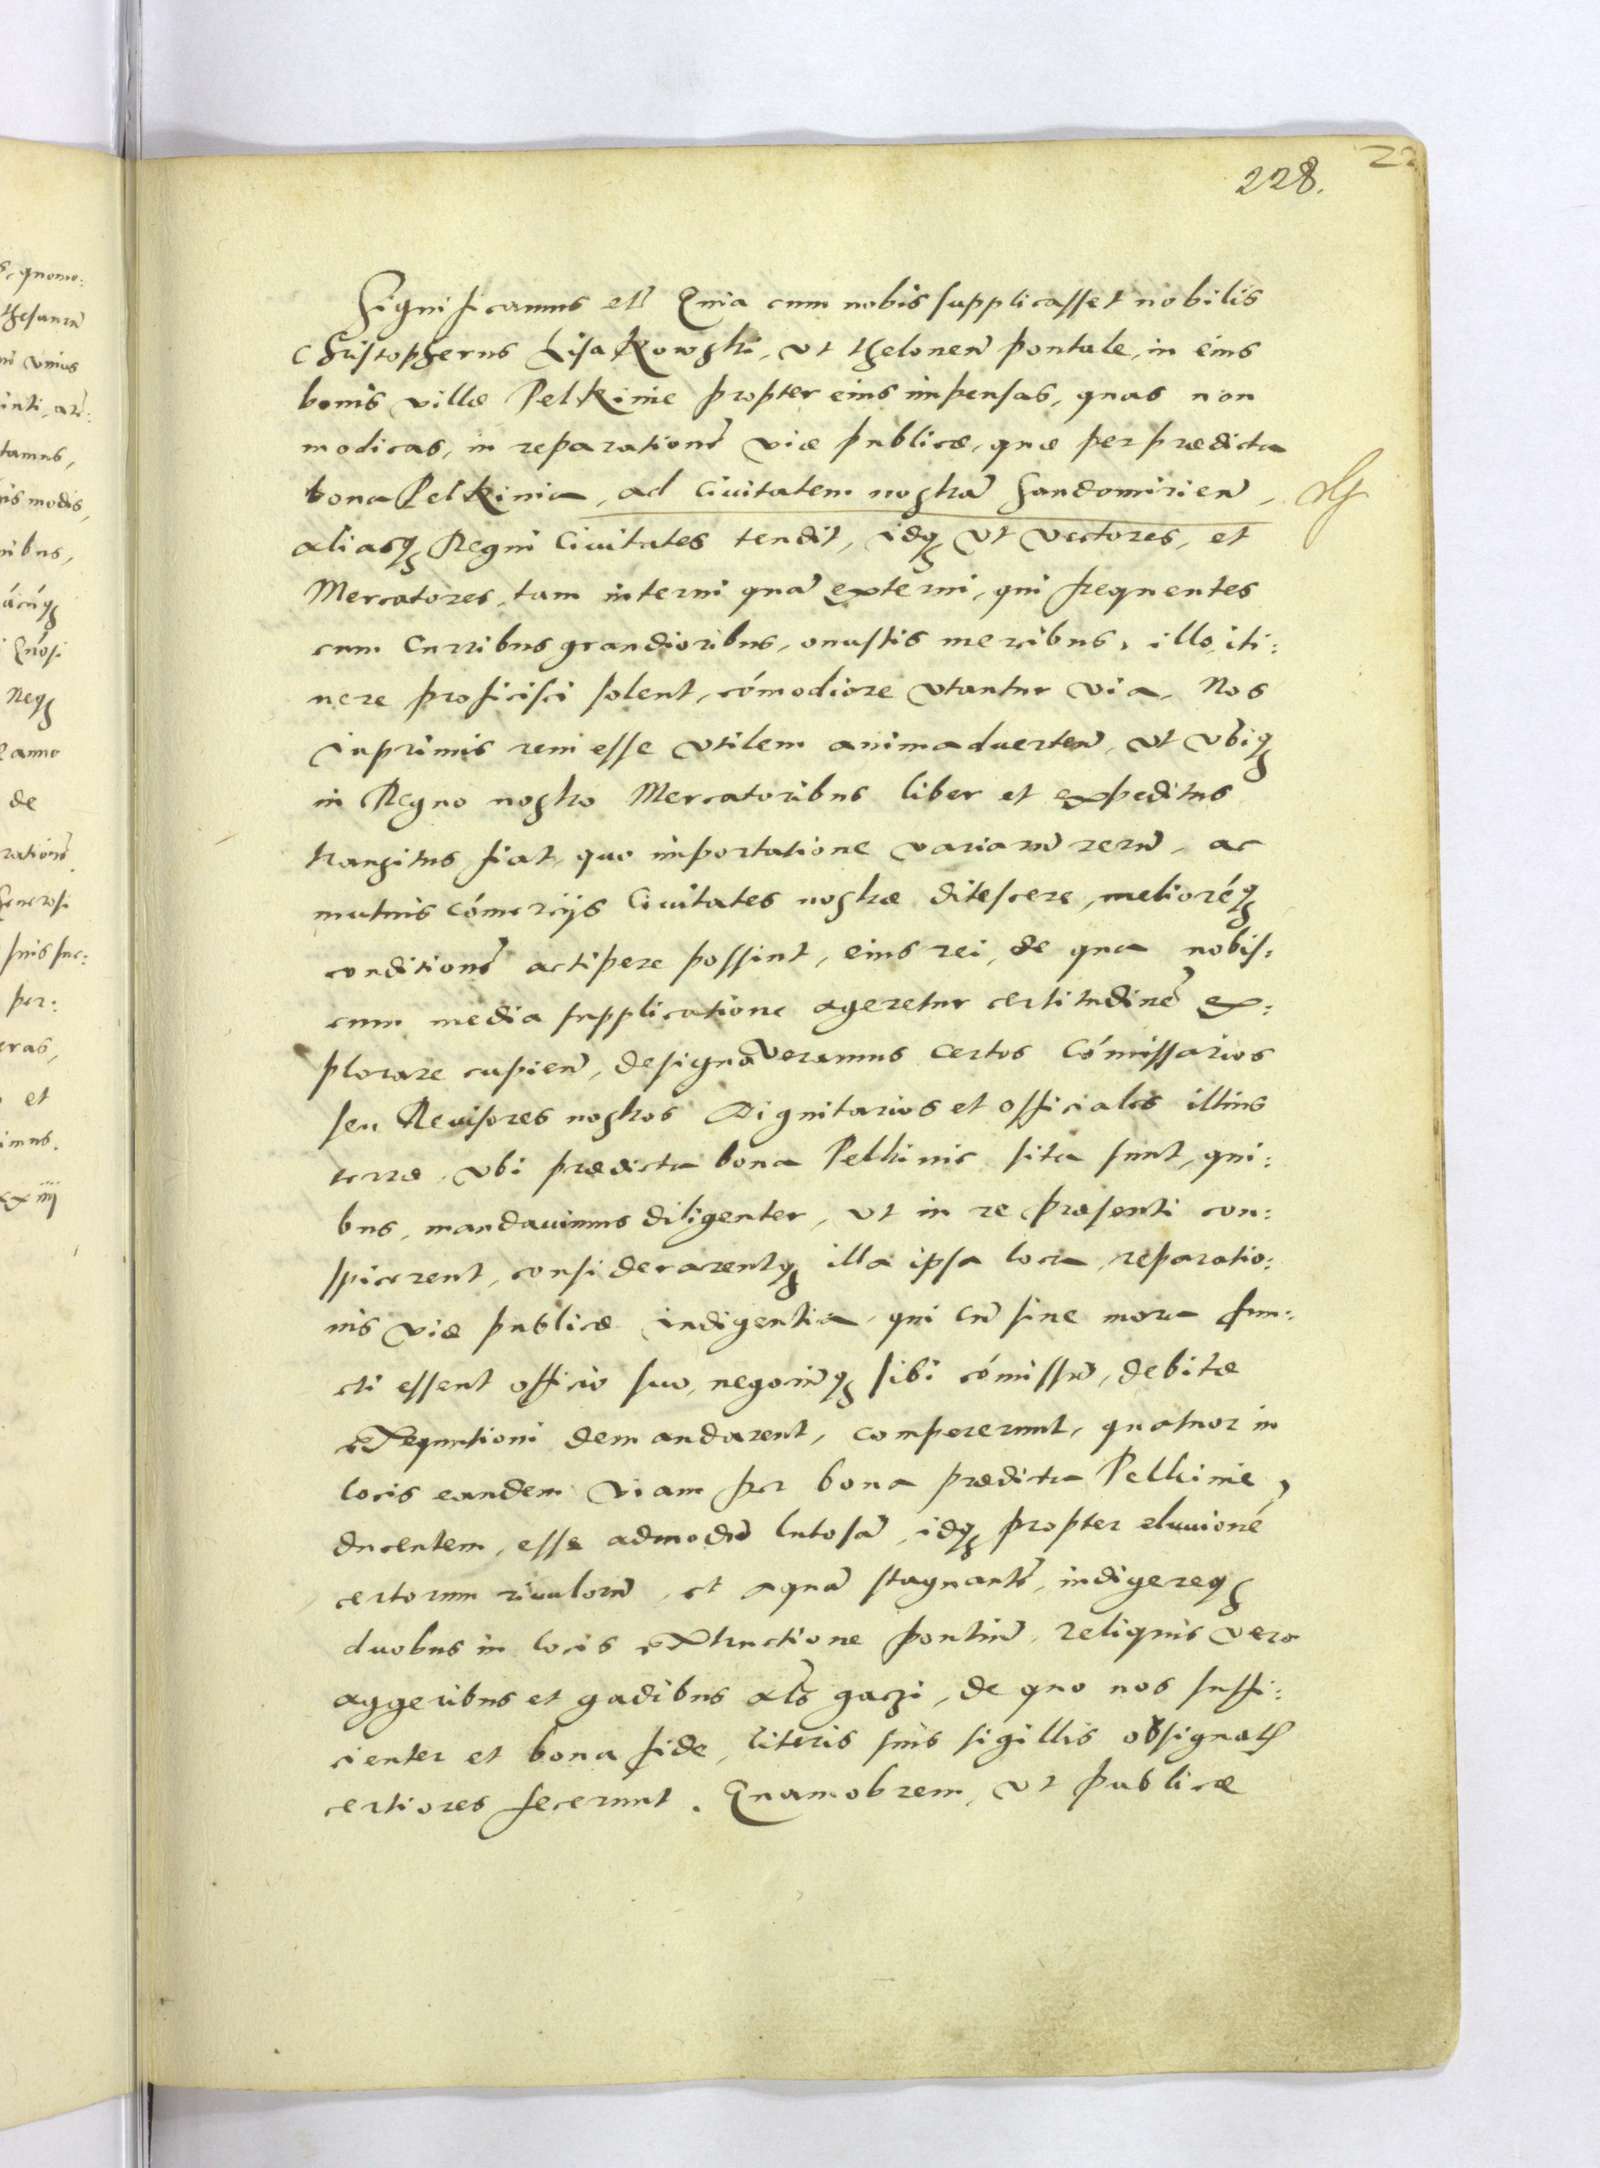 228.
Significamus etc̃ Quia cum nobis supplicasset nobilis
Christopherus Lisakowski, vt theloneũ pontale, in eius
bonis villæ Pelkinie propter eius impensas, quas non
modicas, in reparationẽ viæ publicæ, quæ per prædicta
bona Pelkinia, ad Ciuitatem nostrã Sandomirieñ,
aliasq3 Regni Ciuitates tendit, idq3 vt vectores, et
Mercatores, tam interni quã externi, qui frequentes
cum Curribus grandioribus, onustis mercibus, illo iti:
nere proficisci solent, cómodiore vtantur via, Nos
inprimis rem esse vtilem animaduerteñ, vt vbiq3
in Regno nostro Mercatoribus liber et expeditus
transitus fiat, quo importatione variarũ rerũ, ac
mutuis cómercijs Ciuitates nostræ ditescere, melioréq3
conditionẽ accipere possint, eius rei, de qua nobis:
cum media supplicatione ageretur certitudinẽ ex:
plorare cupieñ, designaveramus certos Cómissarios
seu Reuisores nostros Dignitarios et officiales illius
terræ vbi prædicta bona Pelkinie sita sunt, qui:
bus, mandauimus diligenter, vt in re præsenti con:
spicerent, considerarentq3 illa ipsa loca, reparatio:
nis viæ publicæ indigentia, qui cũ sine mora fun:
cti essent officio suo, negociũq3 sibi cómissũ, debitæ
exequutioni demandarent, compererunt, quatuor in
locis eandem viam per bona prædicta Pelkinie,
ducentem, esse admodũ lutosã, idq3 propter eluuioné
certorum riuulorũ, et aquã stagnantẽ, indigereq3
duobus in locis extructione pontiũ, reliquis vero
aggeribus et gadibus al̃s gaczi, de quo nos suffi:
cienter et bona fide, literis suis sigillis obsignatis
certiores fecerunt. Quamobrem, vt publicæ